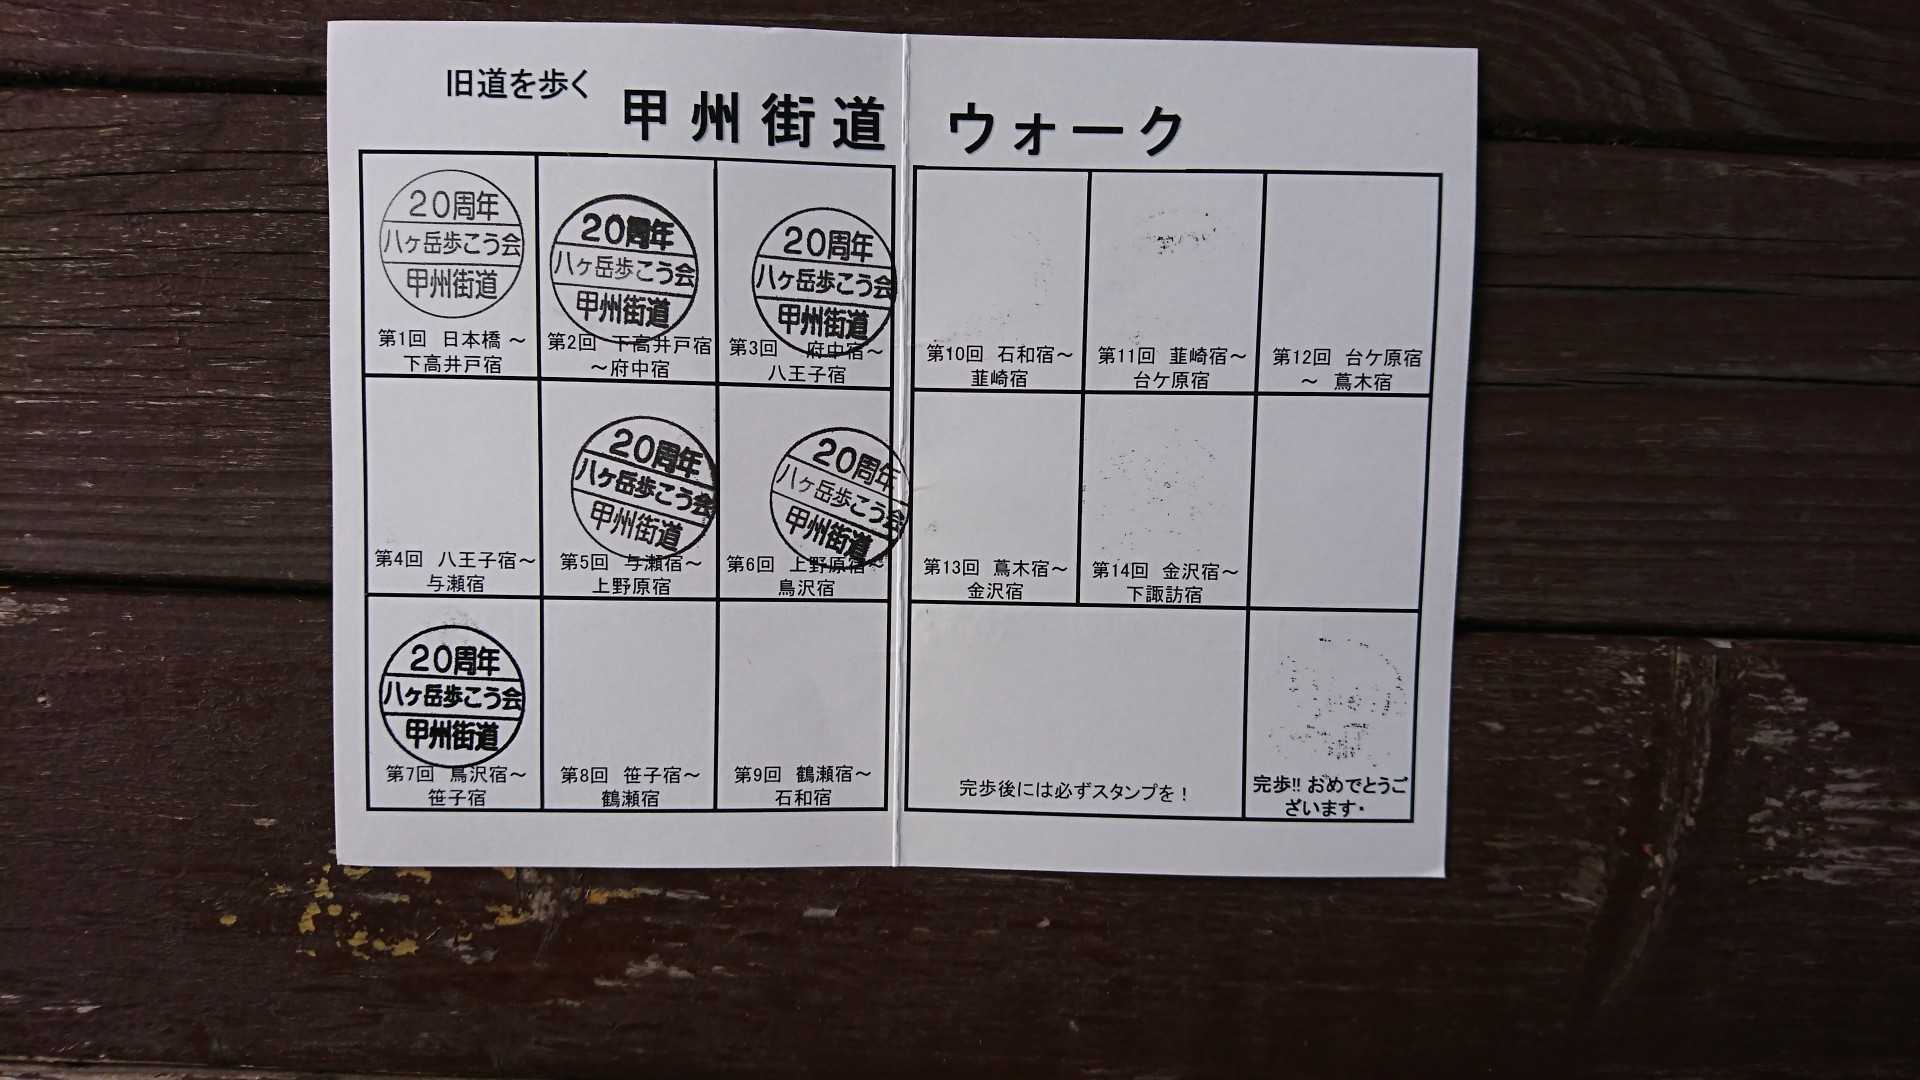 旧道を歩く
甲州街道 ウォーク
20周年
八ヶ岳歩こう会
甲州街道
第1回 日本橋～
下高井戸宿
20周年
八ヶ岳歩こう会
甲州街道
第2回 下高井戸宿
～府中宿
20周年
八ヶ岳歩こう会
甲州街道
第3回 府中宿～
八王子宿
第4回 八王子宿～
与瀬宿
20周年
八ヶ岳歩こう会
甲州街道
第5回 与瀬宿～
上野原宿
20周年
八ヶ岳歩こう会
甲州街道
第6回 上野原宿～
鳥沢宿
20周年
八ヶ岳歩こう会
甲州街道
第7回 鳥沢宿～
笹子宿
第8回 笹子宿～
鶴瀬宿
第9回 鶴瀬宿～
石和宿
第10回 石和宿～
韮崎宿
第11回 韮崎宿～
台ケ原宿
第12回 台ケ原宿
～ 蔦木宿
第13回 蔦木宿～
金沢宿
第14回 金沢宿～
下諏訪宿
完歩後には必ずスタンプを！
完歩!! おめでとうご
ざいます・